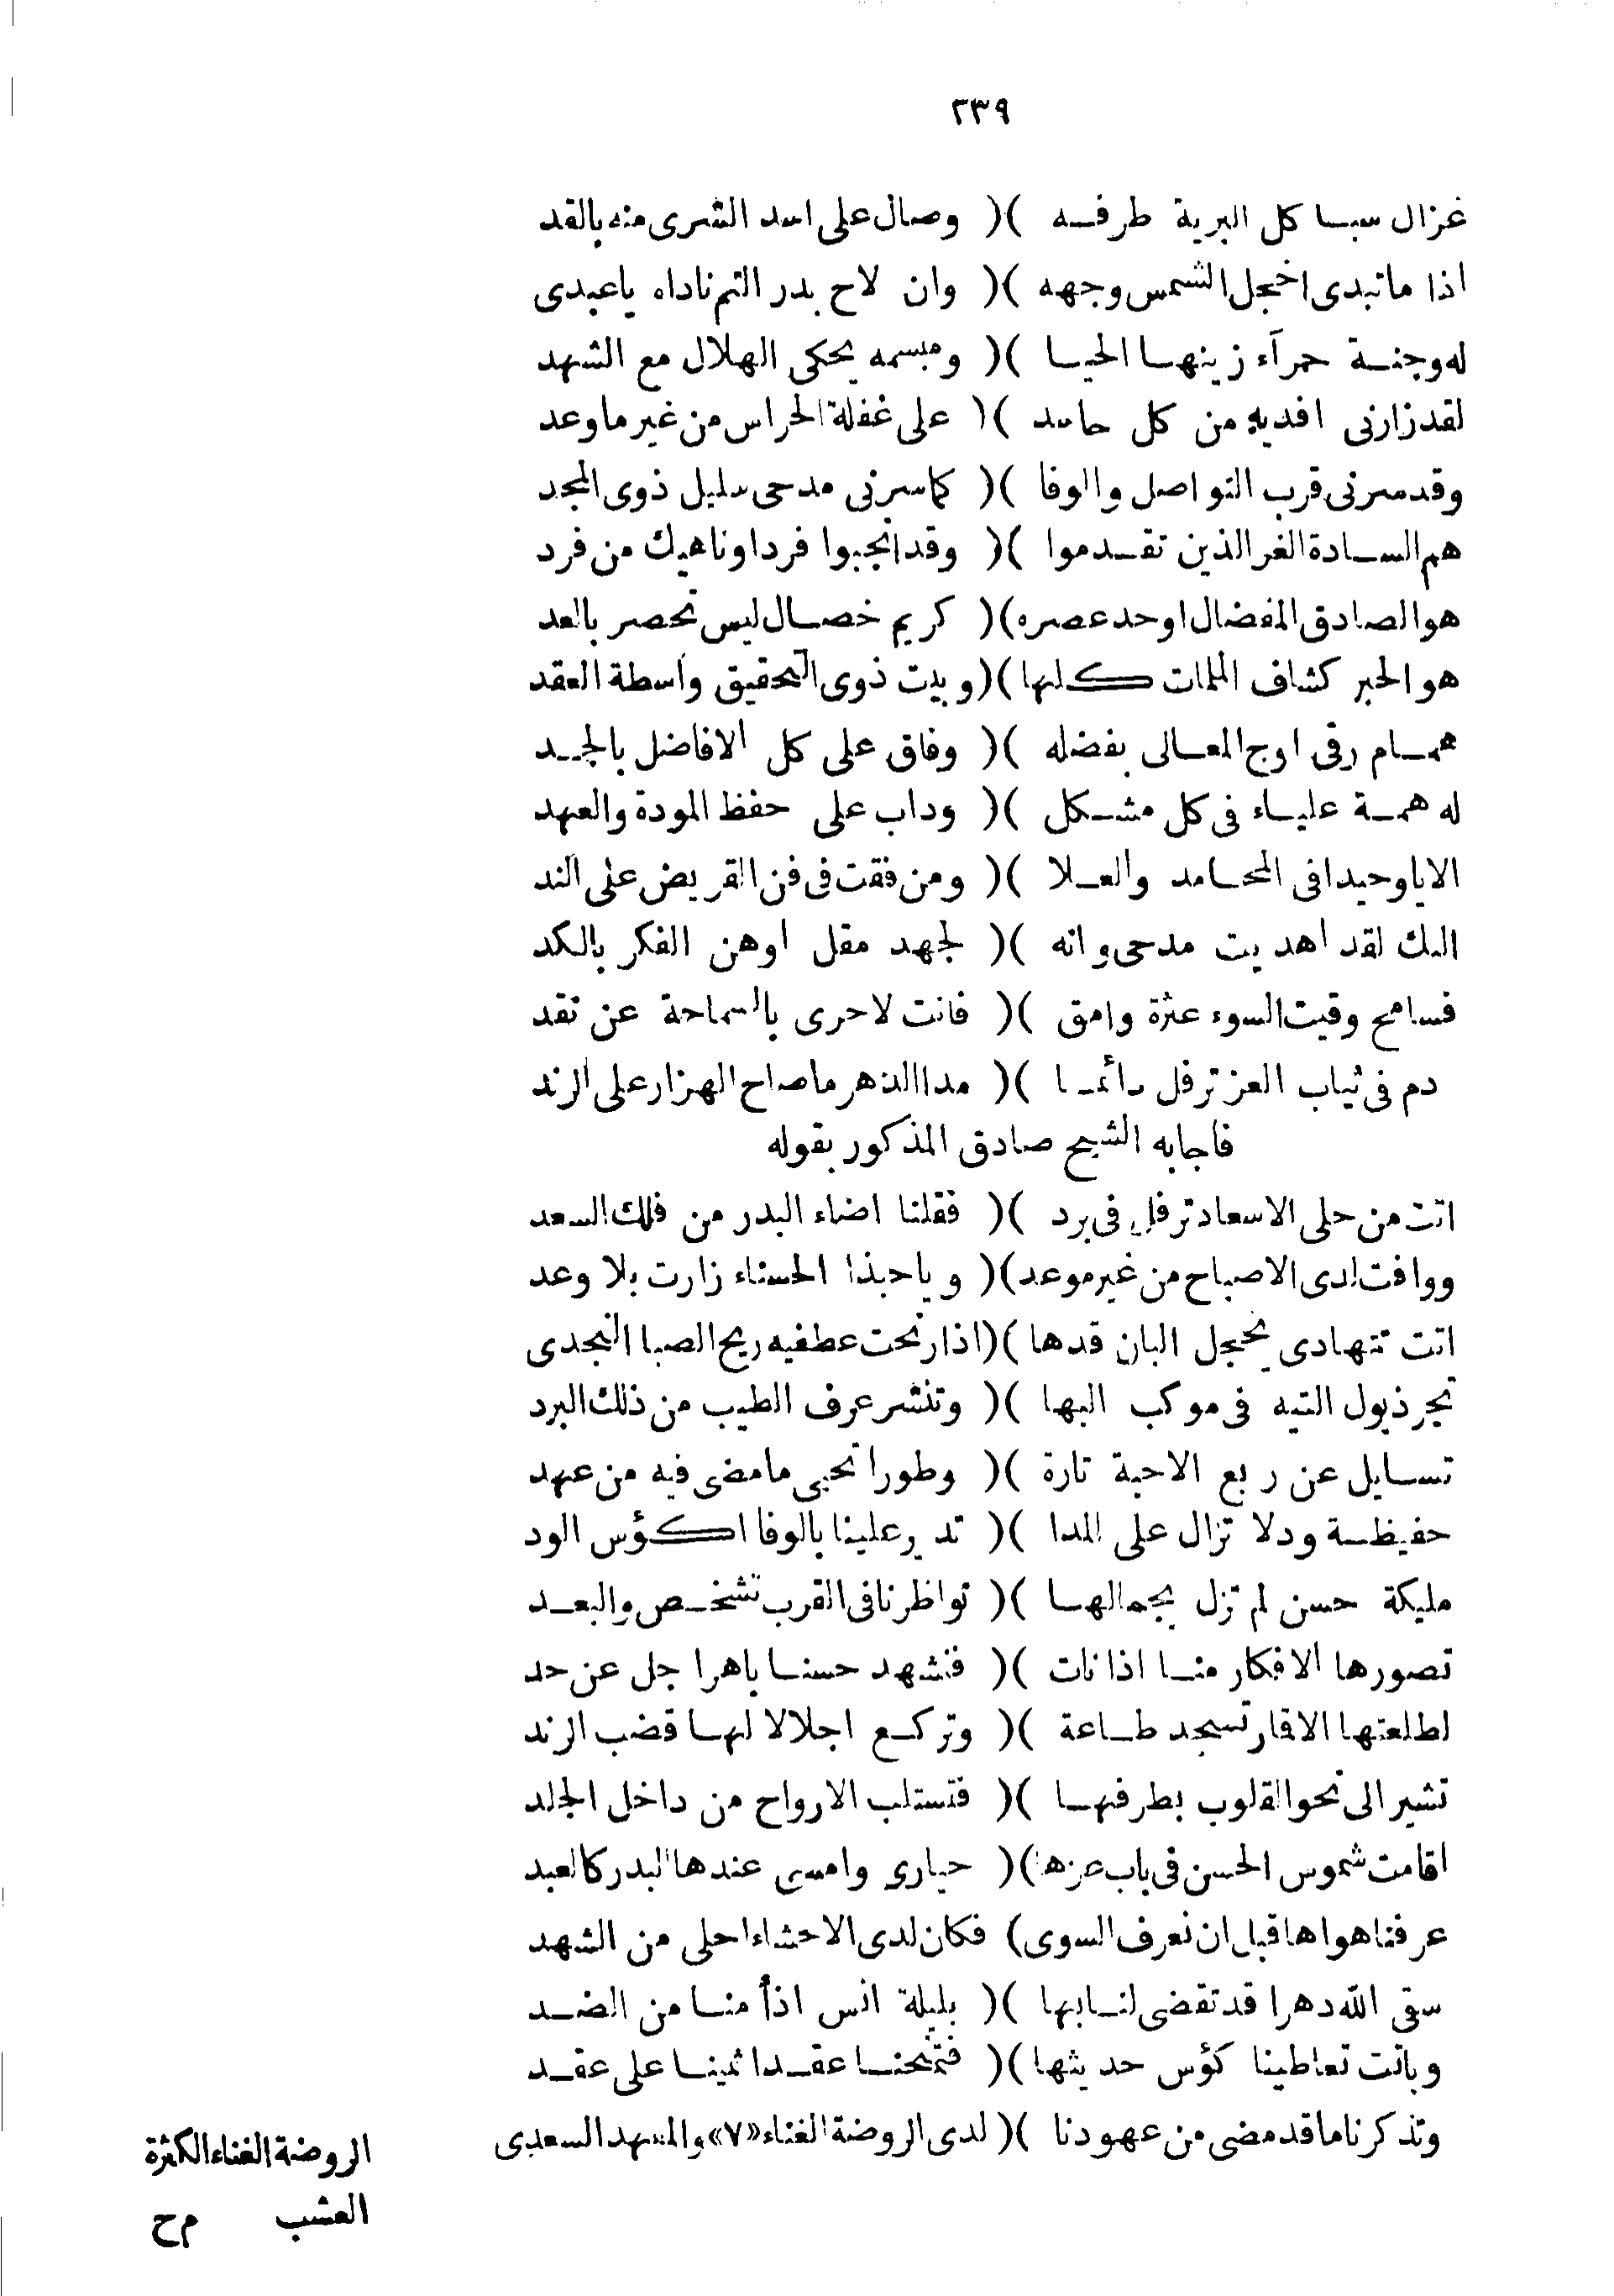 ٢٣٩
غزال سبا كل البرية طرفه )( وصال على اسد الشرى منه بالقد
اذا ما تبدى اخجل الشمس وجهه )( وان لاح بدر التم ناداه يا عبدى
له وجنة حمرآء زينها الحيا )( ومبسمه يحكى الهلال مع الشهد
لقد زارنى افديه من كل حاسد )( على غفلة الحراس من غير ما وعد
وقد سرنى قرب التواصل والوفا )( كما سرنى مدحى سليل ذوى المجد
هم السادة الغر الذين تقدموا )( وقد انجبوا فردا وناهيك من فرد
هو الصادق المفضال اوحد عصره )( كريم خصال ليس تحصر بالعد
هو الحبر كشاف الملمات كلها )( وبيت ذوى التحقيق واسطة العقد
همام رقى اوج المعالى بفضله )( وفاق على كل الافاضل بالجد
له همة علياء فى كل مشكل )( وداب على حفظ المودة والعهد
الا يا وحيدا فى المحامد والعلا )( ومن فقت فى فن القريض على الند
اليك لقد اهديت مدحى وانه )( لجهد مقل اوهن الفكر بالكد
فسامح وقيت السوء عثرة وامق )( فانت لاحرى بالسماحة عن نقد
دم فى ثياب العز ترفل دائما )( مدا الدهر ما صاح الهزار على الرند
فاجابه الشيح صادق المذكور بقوله
اتت من حلى الاسعاد ترفل فى برد )( فقلنا اضاء البدر من فلك السعد
ووافت لدى الاصباح من غير موعد )( ويا حبذا الحسناء زارت بلا وعد
اتت تتهادى يخجل البان قدها )( اذا رنحت عطفيه ريح الصبا النجدى
تجر ذيول التيه فى موكب البها )( وتنشر عرف الطيب من ذلك البرد
تسايل عن ربع الاحبة تارة )( وطورا تحيى ما مضى فيه من عهد
حفيظة ود لا تزال على المدا )( تدير علينا بالوفا اكؤس الود
مليكة حسن لم تزل بجمالها )( نواظرنا فى القرب تشخص والبعد
تصورها الافكار منا اذا نات )( فنشهد حسنا باهرا جل عن حد
لطلعتها الاقمار تسجد طاعة )( وتركع اجلالا لها قضب الرند
تشير الى نحو القلوب بطرفها )( فتستلب الارواح من داخل الجلد
اقامت شموس الحسن فى باب عزها )( حيارى وامسى عندها البدر كالعبد
عرفنا هواها قبل ان نعرف السوى ) فكان لدى الاحشاء احلى من الشهد
سقى الله دهرا قد تقضى لنا بها )( بليلة انس اذ أمنا من الضد
وباتت تعاطينا كؤس حديثها )( فتمنحنا عقدا ثمينا على عقد
وتذكرنا ما قد مضى من عهودنا )( لدى الروضة الغناء «٧» والمشهد السعدى
الروضة الغناء الكثرة
العشب م ح